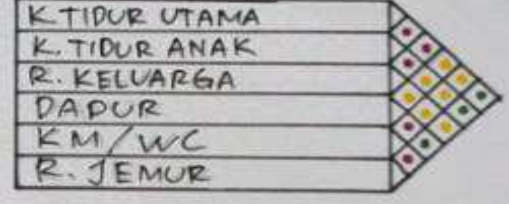 K. TIDUR UTAMA
K. TIDUR ANAK
R. KELUARGA
DAPUR
KM/WC
R. JEMUR